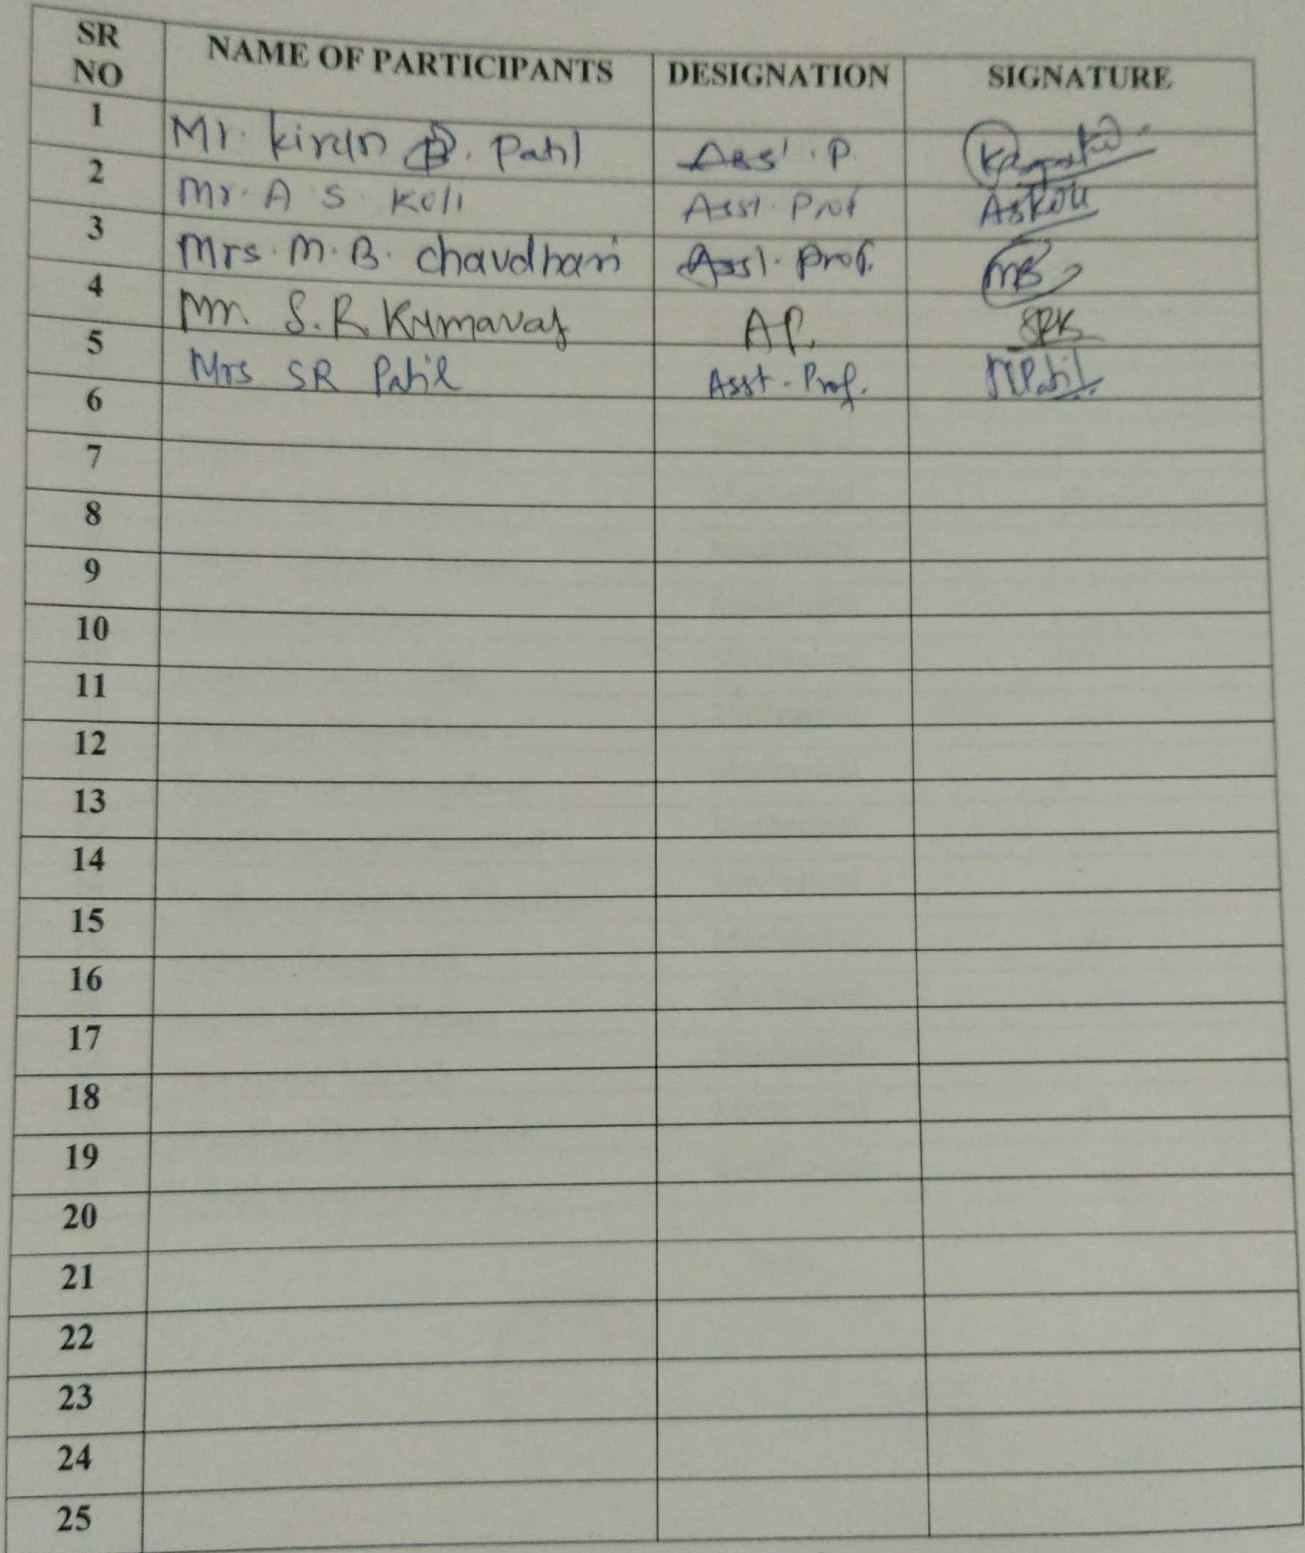 SR NO NAME OF PARTICIPANTS DESIGNATION SIGNATURE
1 Mr. Kiran B. Patil Ass' . P.
2 Mr. A S. Koli Asst. Prof ASKoli
3 Mrs. M. B. Chaudhari Asst. Prof. MB
4 Mr. S. R. Kumavat AP. SRK
5 Mrs SR Patil Asst. Prof. SRPatil
6
7
8
9
10
11
12
13
14
15
16
17
18
19
20
21
22
23
24
25